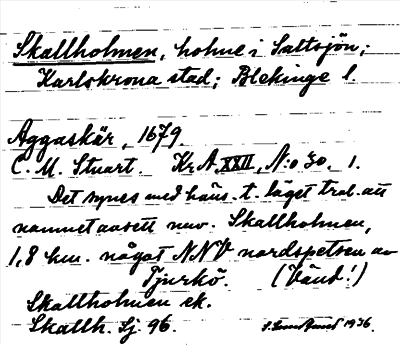 Skallholmen, holme i Saltsjön;
Karlskrona stad; Blekinge l.
Aggaskär, 1679.
C. M. Stuart. Kr A XXII, N:o 30. 1.
Det synes med häns. t. läget tral. att
namnet avsett nuv. Skallholmen,
1,8 km. något NNV nordspetsen av
Tjurkö. (Vänd!)
Skallholmen ek.
Skallh. Sj. 96.
1936.